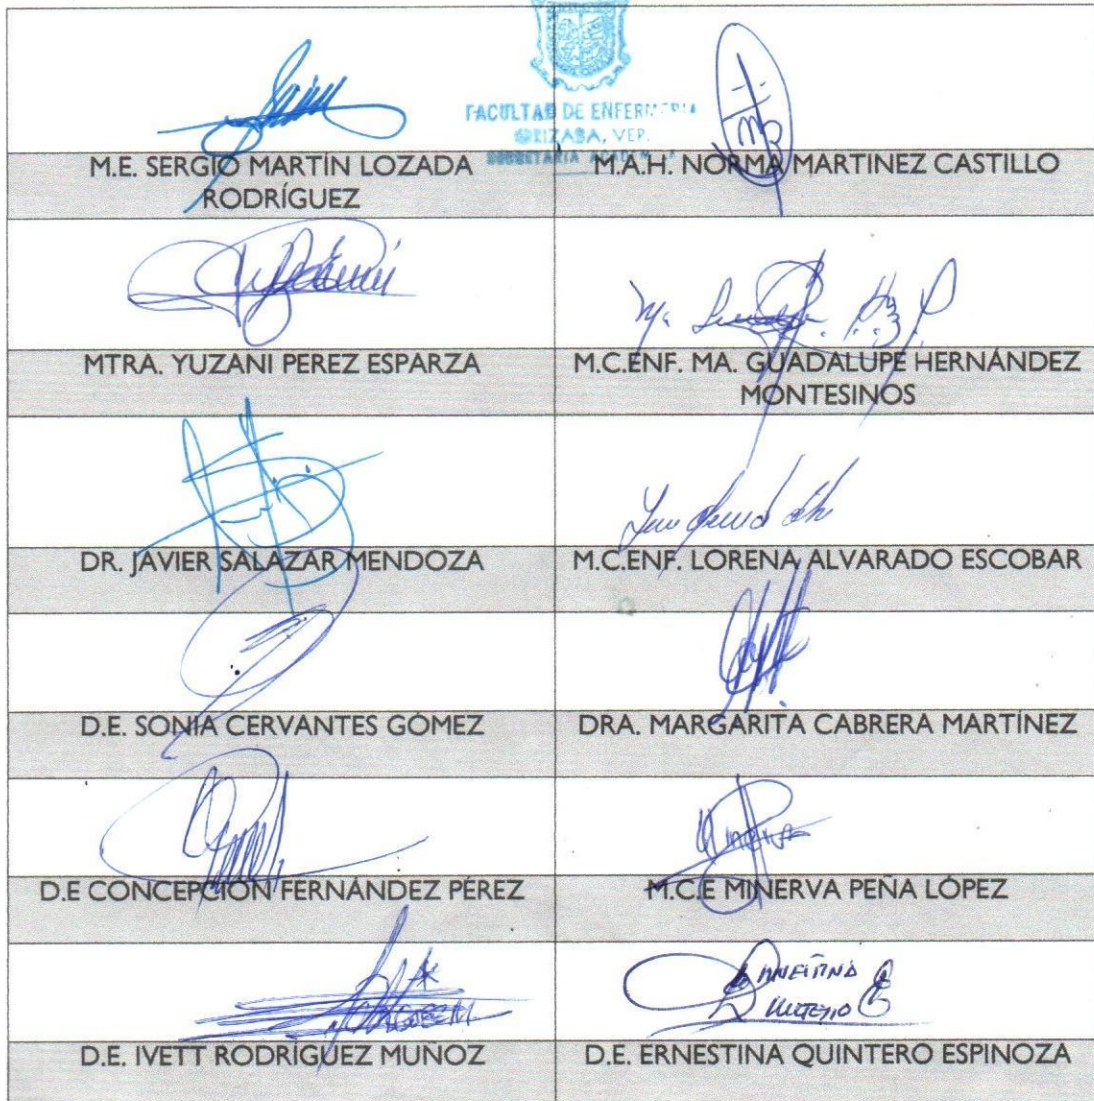 FACULTAD DE ENFERMERIA
ORIZABA, VER.
SECRETARIA
M.E. SERGIO MARTÍN LOZADA
RODRÍGUEZ
M.A.H. NORMA MARTINEZ CASTILLO
MTRA. YUZANI PEREZ ESPARZA
M.C.ENF. MA. GUADALUPE HERNÁNDEZ
MONTESINOS
DR. JAVIER SALAZAR MENDOZA
M.C.ENF. LORENA ALVARADO ESCOBAR
D.E. SONIA CERVANTES GÓMEZ
DRA. MARGARITA CABRERA MARTÍNEZ
D.E CONCEPCIÓN FERNÁNDEZ PÉREZ
M.C.E MINERVA PEÑA LÓPEZ
D.E. IVETT RODRÍGUEZ MUÑOZ
D.E. ERNESTINA QUINTERO ESPINOZA